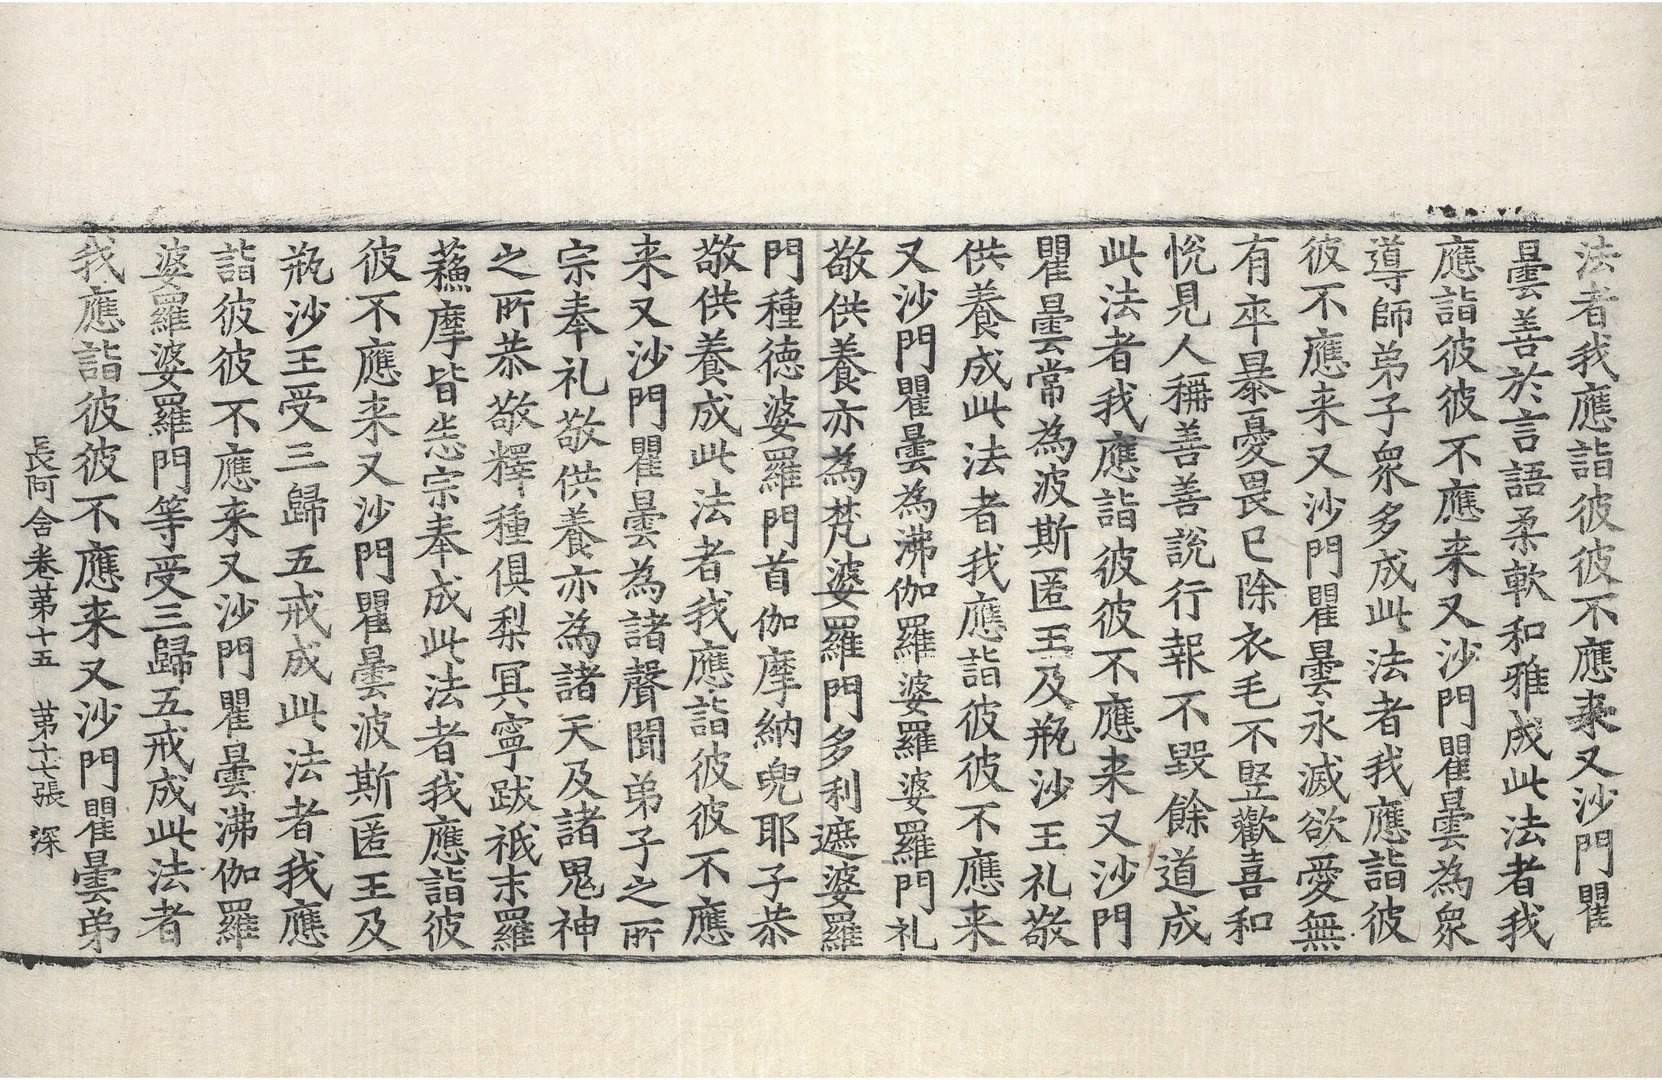 法者我應詣彼彼不應来又沙門瞿
曇善於言語柔軟和雅成此法者我
應詣彼彼不應来又沙門瞿曇為衆
導師弟子衆多成此法者我應詣彼
彼不應来又沙門瞿曇永滅欲愛無
有卒暴憂畏已除衣毛不竪歡喜和
悅見人稱善善說行報不毀餘道成
此法者我應詣彼彼不應来又沙門
瞿曇常為波斯匿王及瓶沙王礼敬
供養成此法者我應詣彼彼不應来
又沙門瞿曇為沸伽羅婆羅婆羅門礼
敬供養亦為梵婆羅門多利遮婆羅
門種德婆羅門首伽摩納兜耶子恭
敬供養成此法者我應詣彼彼不應
来又沙門瞿曇為諸聲聞弟子之所
宗奉礼敬供養亦為諸天及諸鬼神
之所恭敬釋種俱梨冥寧跋祇末羅
蘓摩皆悉宗奉成此法者我應詣彼
彼不應来又沙門瞿曇波斯匿王及
瓶沙王受三歸五戒成此法者我應
詣彼彼不應来又沙門瞿曇沸伽羅
婆羅婆羅門等受三歸五戒成此法者
我應詣彼彼不應来又沙門瞿曇弟
長阿含卷第十五 第十七張 深